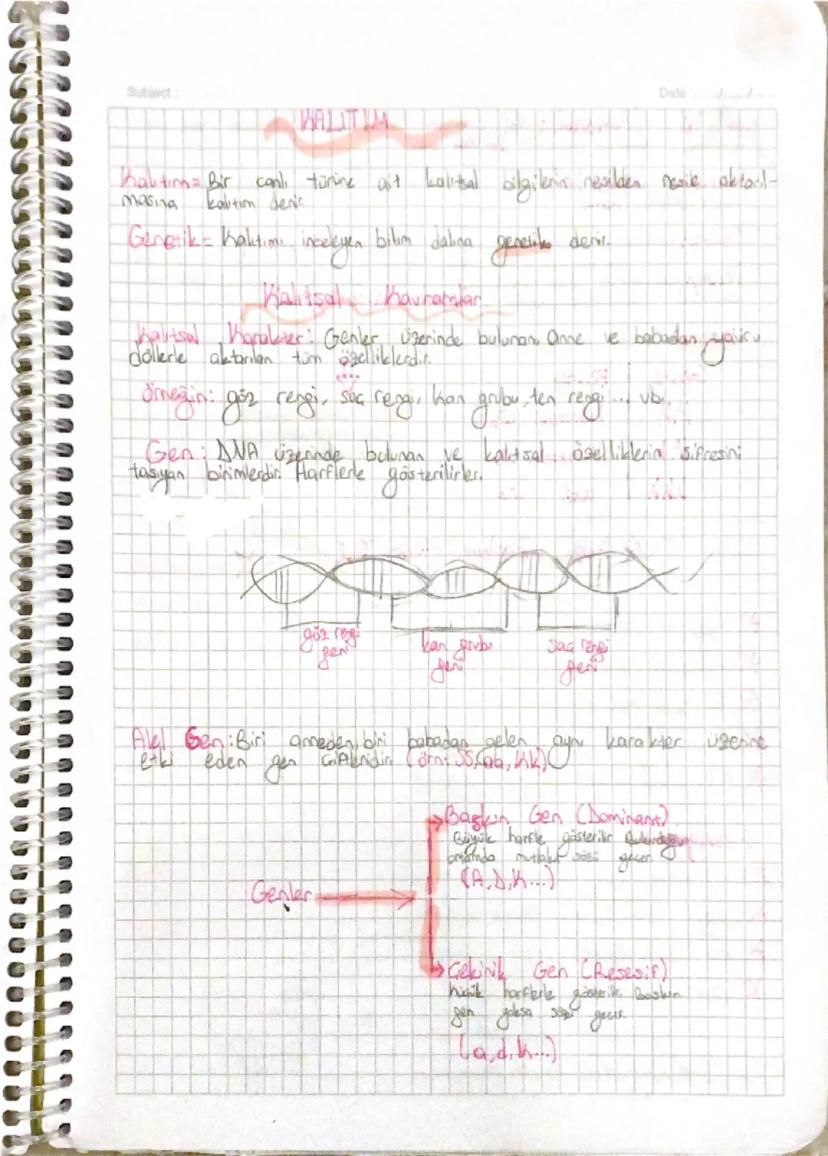 Subject :
Date : ..../..../....
KALITIM
Kalıtım = Bir canlı türüne ait kalıtsal bilgilerin nesilden nesile aktarıl-
masına kalıtım denir.
Genetik = Kalıtımı inceleyen bilim dalına genetik denir.
Kalıtsal Kavramlar
Kalıtsal Karakter: Genler üzerinde bulunan, anne ve babadan yavru
döllerle aktarılan tüm özelliklerdir.
Örneğin: göz rengi, saç rengi, kan grubu, ten rengi... vb.
Gen: DNA üzerinde bulunan ve kalıtsal özelliklerin şifresini
taşıyan birimlerdir. Harflerle gösterilirler.
göz rengi kan grubu saç rengi
geni geni geni
Alel Gen: Biri anneden, biri babadan gelen aynı karakter üzerine
etki eden gen çiftleridir. (örn: SS, aa, Kk)
Baskın Gen (Dominant)
Büyük harfle gösterilir. Bulunduğu
ortamda mutlaka sözü geçer.
(A, D, K...)
Genler
Çekinik Gen (Resesif)
küçük harflerle gösterilir. Baskın
gen yoksa sözü geçer.
(a, d, k...)